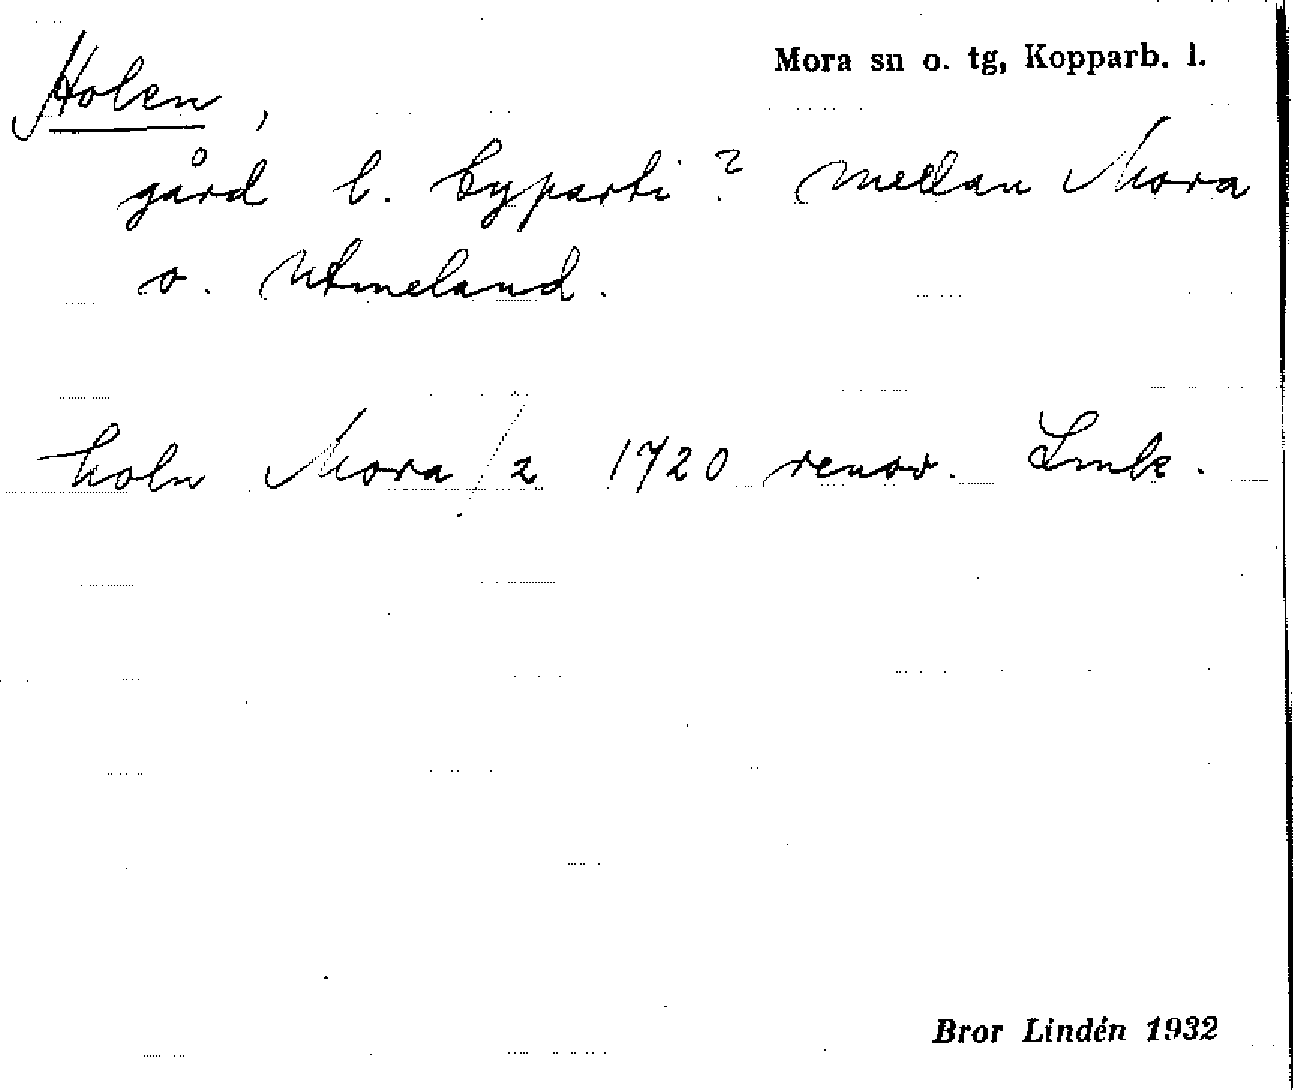 Mora sn o. tg, Kopparb. l.
Holen,
gård l. byparti? mellan Mora
o. Utmeland.
holn Mora/2 1720 renov. Lmk.
Bror Lindén 1932